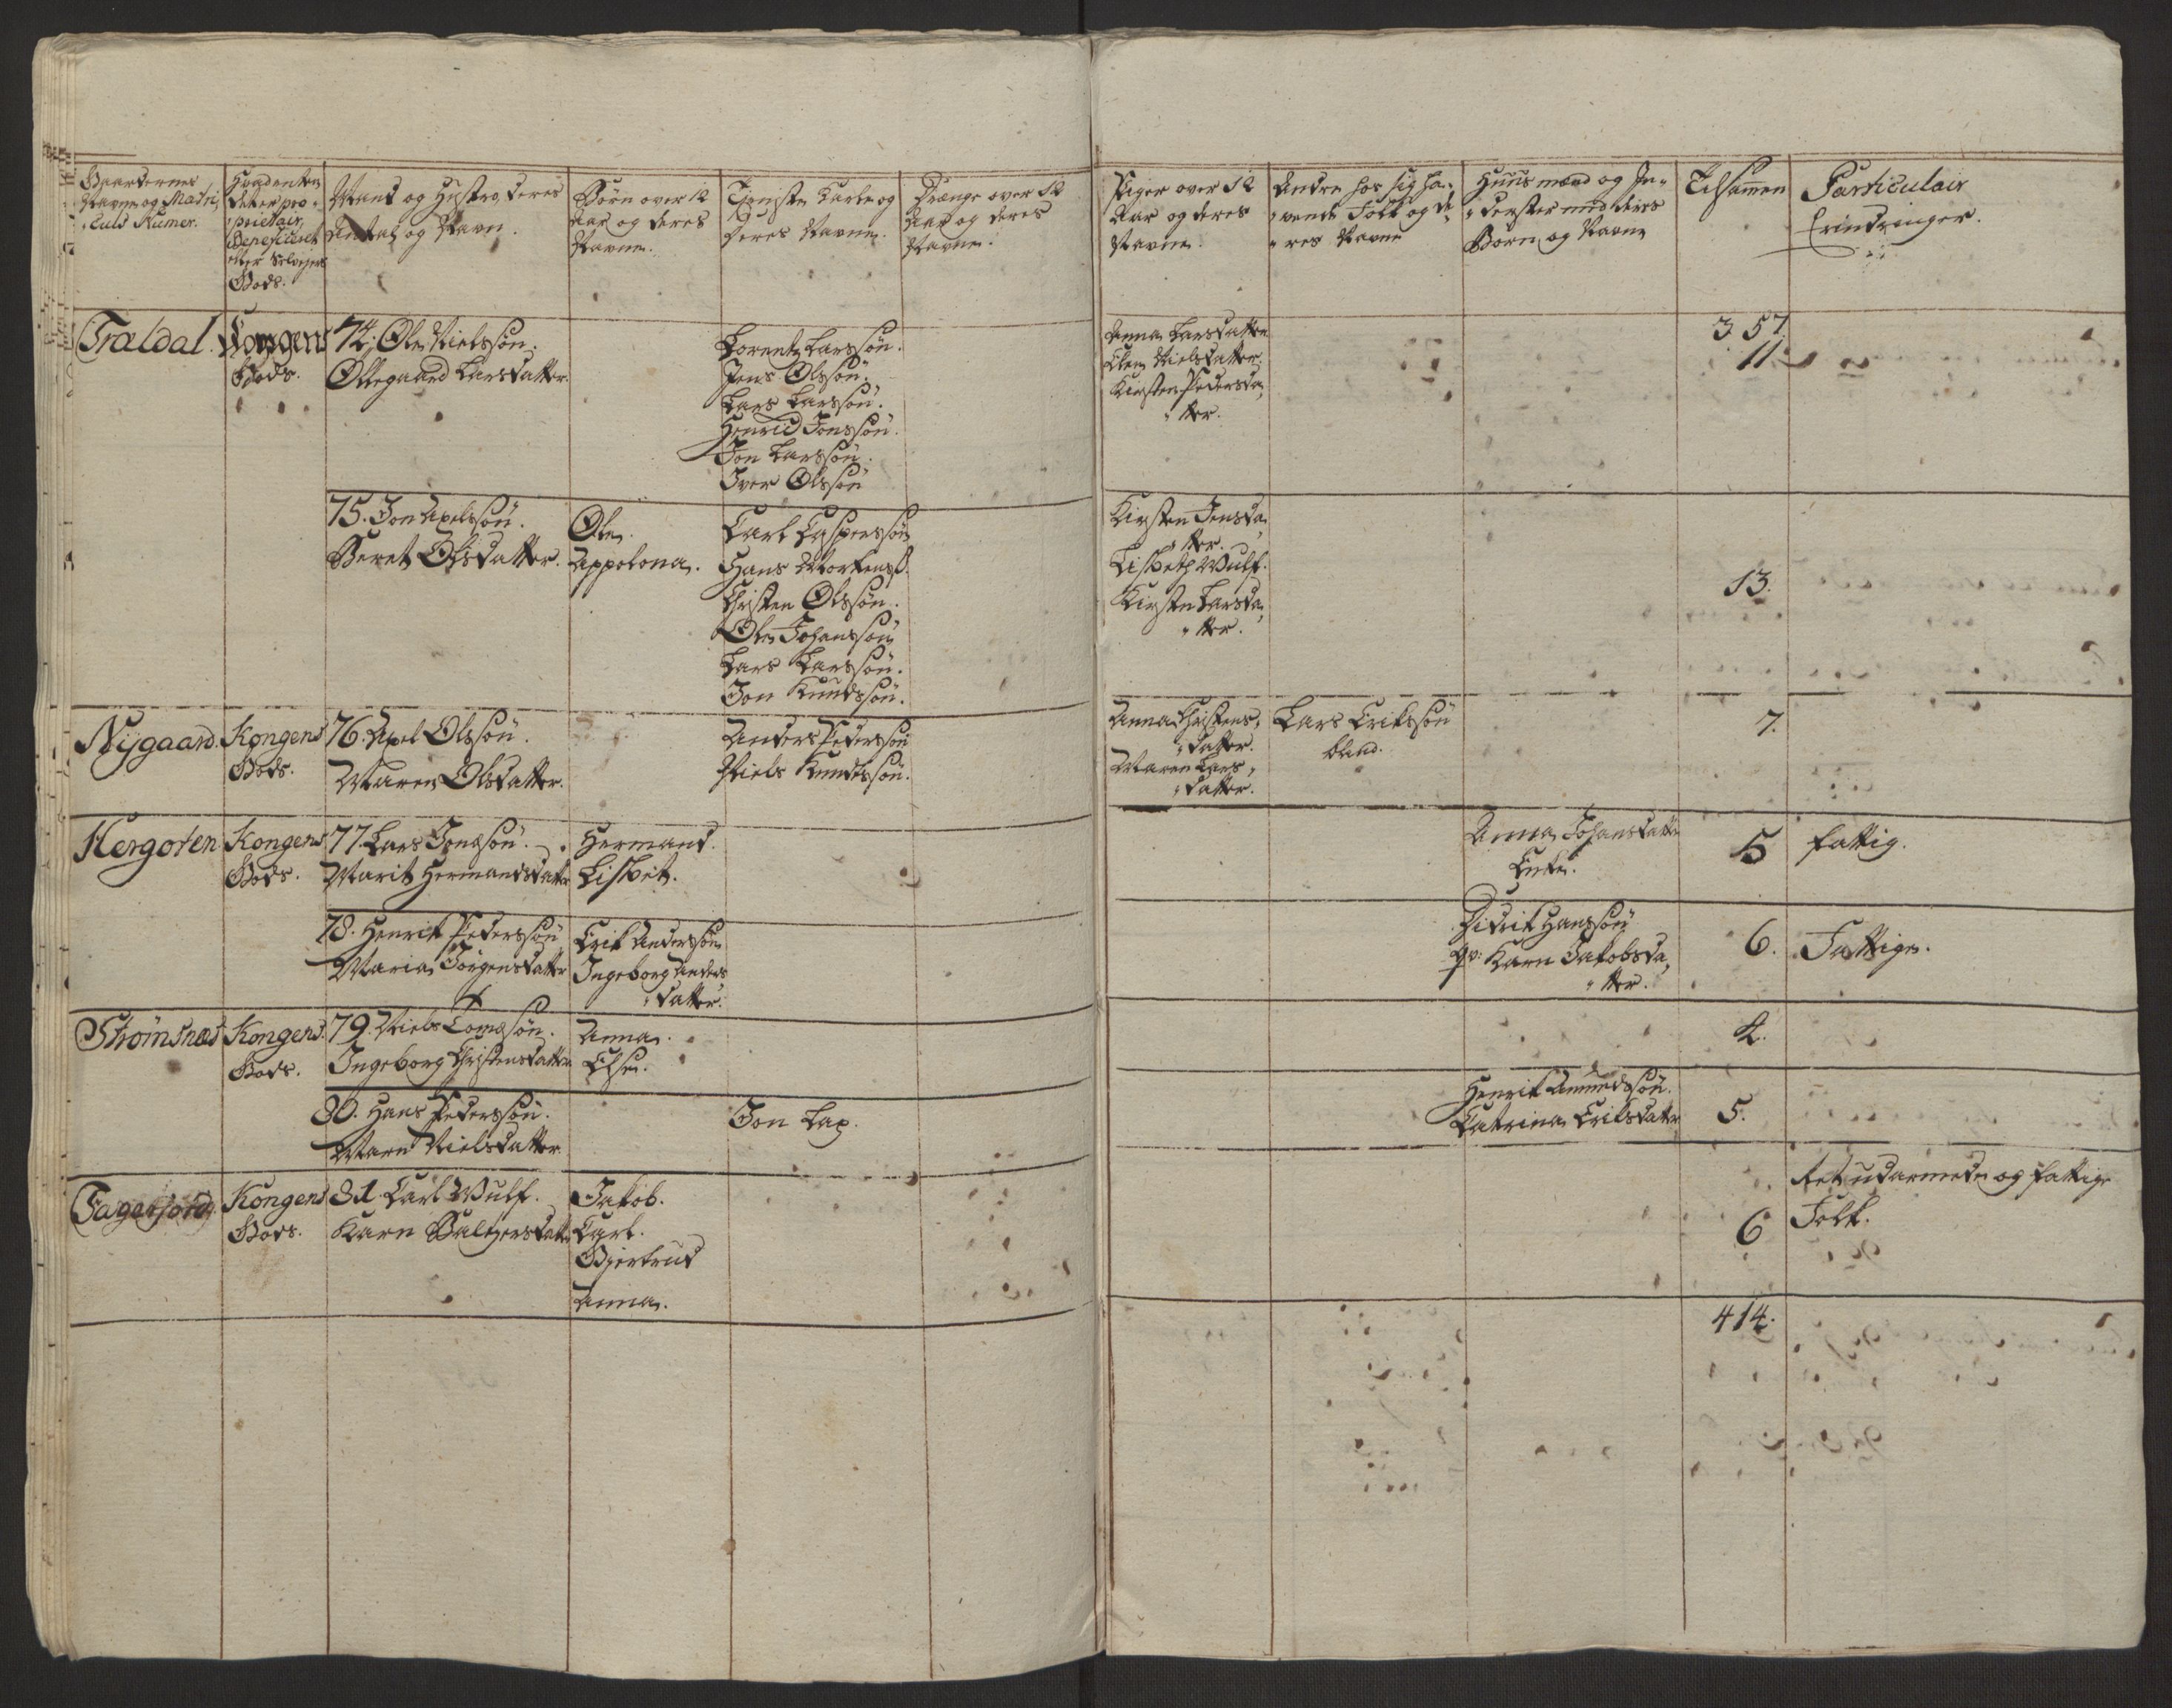 Gaardernes
Navne og Matri,
culs Numer.
Hvad enten
det er pro,
prietair,
Beneficeret
eller Selvejer
Gods.
Mand og Hustro, deres
Antal og Navn.
Børn over 12
Aar og deres
Navne.
Tjeniste Karle og
deres Navne.
Drænge over 12
Aar og deres
Navne.
Piger over 12
Aar og deres
Navne.
Andre hos sig ha,
vende Folk og de,
res Navne
Huusmænd og In,
derster med deres
Børn og Navne
Tilsamen
Particulair
Erindringer.
Trældal.
Kongens
Gods.
74. Ole Nielssøn.
Ollegaard Larsdatter.
Lorentz Larssøn.
Jens Olssøn.
Lars Larssøn.
Henrid Jonssøn.
Jon Larssøn.
Iver Olssøn
Anna Larsdatter
Elen Nielsdatter.
Kirsten Pedersda,
tter.
357
11
75. Jon Axelssøn.
Beret Olsdatter.
Ole.
Appolona.
Carl Caspersson
Hans Mortenss.
Christen Olssøn.
Ole Johanssøn
Lars Larssøn.
Jon Knudssøn.
Kirsten Jensda,
tter.
Lisbeth Wulf.
Kirsten Larsda,
tter.
13.
Nÿgaard.
Kongens
Gods.
76. Axel Olssøn.
Maren Olsdatter.
Anders Pederssøn
Niels Knudssøn.
Anna Christens,
datter.
Maren Lars,
datter.
Lars Erikssøn
blind.
7.
Hergoten
Kongens
Gods.
77. Lars Jonssøn.
Marit Hermandsdatter
Hermand.
Lisbet.
Anna Johansdatter
Enke.
5
fattig.
78. Henrik Pederssøn
Maria Jørgensdatter
Erik Anderssøn
Ingeborg Anders
datter.
Didrik Hanssøn
qv: Karn Jakobsda,
tter.
6.
Fattige.
Strømsnæs
Kongens
Gods.
79. Niels Tomssøn.
Ingeborg Christensdatter
Anna.
Else.
4.
80. Hans Pederssøn.
Maren Nielsdatter
Jon Lap.
Henrik Amundssøn.
Catrina Eriksdatter
5.
Fagerjord
Kongens
Gods.
81. Carl Wulf.
Karn Baltzersdatter
Jakob.
Carl.
Gjertrud
Anna.
6
Ret udarmede og fattige
Folk.
414.